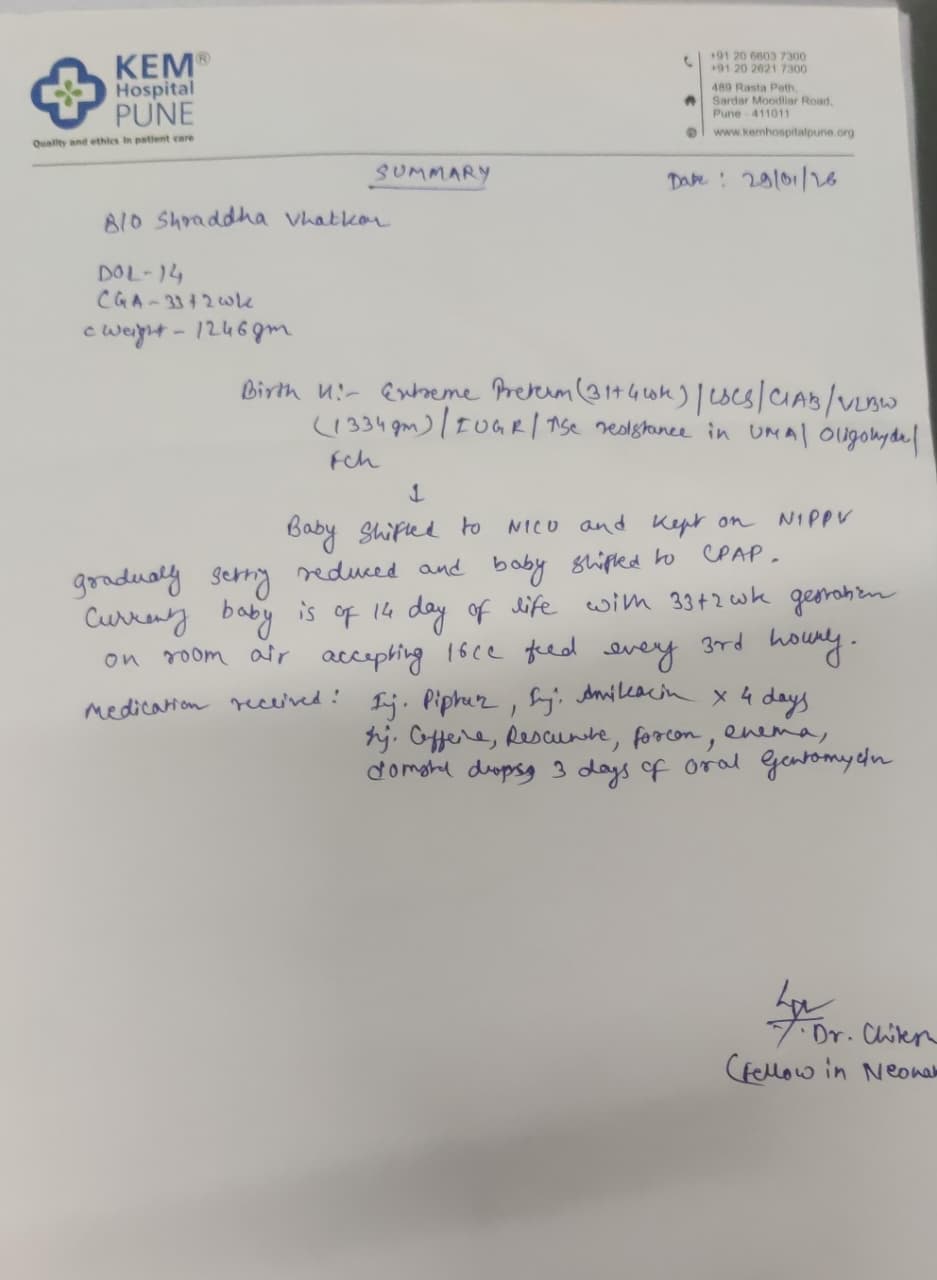 KEM®
Hospital
PUNE
Quality and ethics in patient care
+91 20 6603 7300
+91 20 2621 7300
489 Rasta Peth,
Sardar Moodliar Road,
Pune - 411011
www.kemhospitalpune.org
SUMMARY
Date : 29/01/26
B/O Shraddha Vhatkar
DOL - 14
CGA - 33+2wk
c weight - 1246gm
Birth H:- Extreme Preterm (31+4wk) / LSCS / CIAB / VLBW
(1334gm) / IUGR / ↑Se resistance in UMA / Oligohyda /
↓
Baby shifted to NICU and kept on NIPPV
gradually setting reduced and baby shifted to CPAP.
Currently baby is of 14 day of life with 33+2wk gestation
on room air accepting 16cc feed every 3rd hourly.
Medication received: Inj. Piptaz, Inj. Amikacin x 4 days
Inj. Caffeine, enema,
drops, 3 days of oral Gentomycin
Dr.
(Fellow in